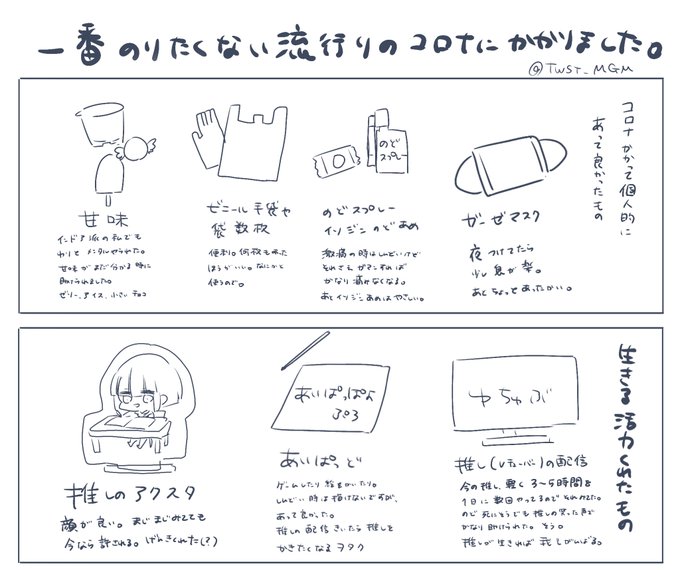 一番のりたくない流行りのコロナにかかりました。
@TWST_MGM
コロナかかって個人的に
あって良かったもの
ガーゼマスク
夜つけてたら
少し息が楽。
あとちょっとあったかい。
のどスプレー
のどスプレー
イソジンのどあめ
激痛の時はしんどいけど
それさえガマンすれば
かなり痛みなくなる。
あとイソジンあめはやさしい。
ビニール手袋や
袋数枚
便利。何枚もあった
ほうがいい。なにかと
使うので。
甘味
インドア派の私でも
わりとメンタルやられた。
甘味がまだ分かる時に
助けられました。
ゼリー、アイス、小さいチョコ
生きる活力くれたもの
ゆちゅぶ
推し(Vチューバー)の配信
今の推し、軽く3~5時間を
1日に数回やってるのでそれみてた。
ので死にそうでも推しの笑った声で
かなり助けられた。そう。
推しが生きれば我もがんばる。
あいぱっぱよ
ぷろ
あいぱっど
ゲームしたり絵をかいたり。
しんどい時は描けないですが、
あって良かった。
推しの配信きいたら推しを
かきたくなるヲタク
推しのアクスタ
顔が良い。まじまじみてても
今なら許される。げんきくれた(?)